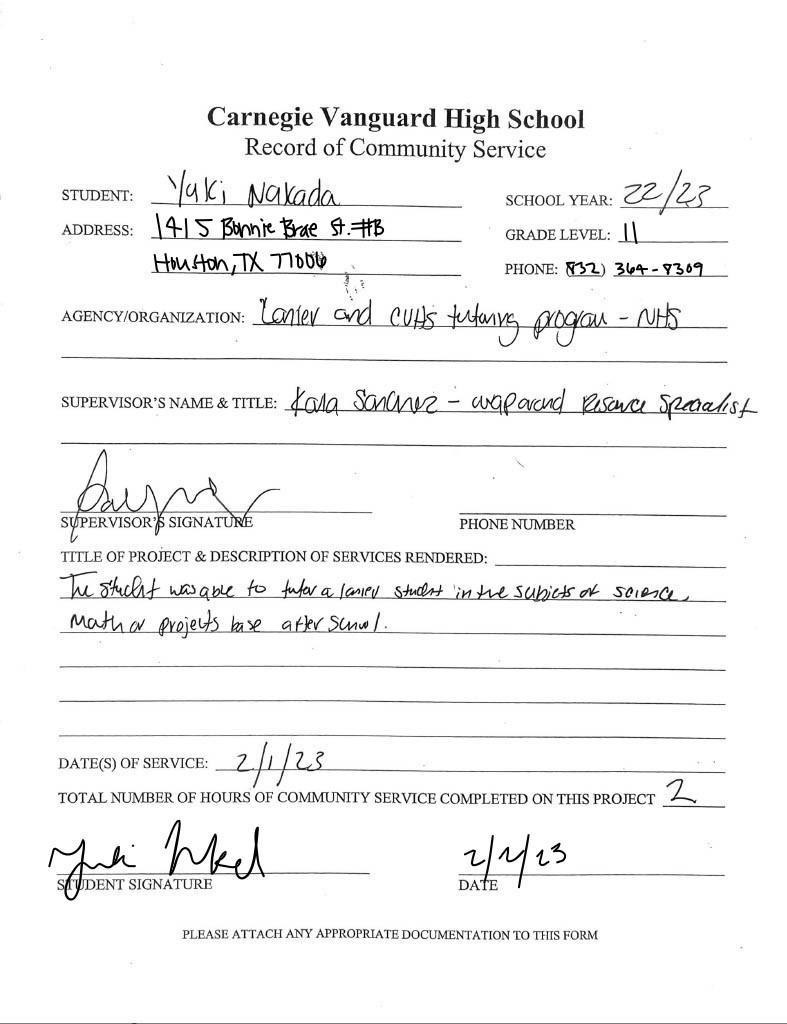 Carnegie Vanguard High School
Record of Community Service
STUDENT: Yuki Nakada
SCHOOL YEAR: 22/23
ADDRESS: 1415 Bonnie Brae St. #B
GRADE LEVEL: 11
Houston, TX 77006
PHONE: (832) 364-8309
AGENCY/ORGANIZATION: Lanier and CVHS tutoring program - NHS
SUPERVISOR'S NAME & TITLE: Sanchez - wraparound Resource Specialist
SUPERVISOR'S SIGNATURE
PHONE NUMBER
TITLE OF PROJECT & DESCRIPTION OF SERVICES RENDERED:
The student was able to tutor a lanier student in the subjects of science,
Math or projects base after school.
DATE(S) OF SERVICE: 2/1/23
TOTAL NUMBER OF HOURS OF COMMUNITY SERVICE COMPLETED ON THIS PROJECT 2
STUDENT SIGNATURE
DATE
PLEASE ATTACH ANY APPROPRIATE DOCUMENTATION TO THIS FORM